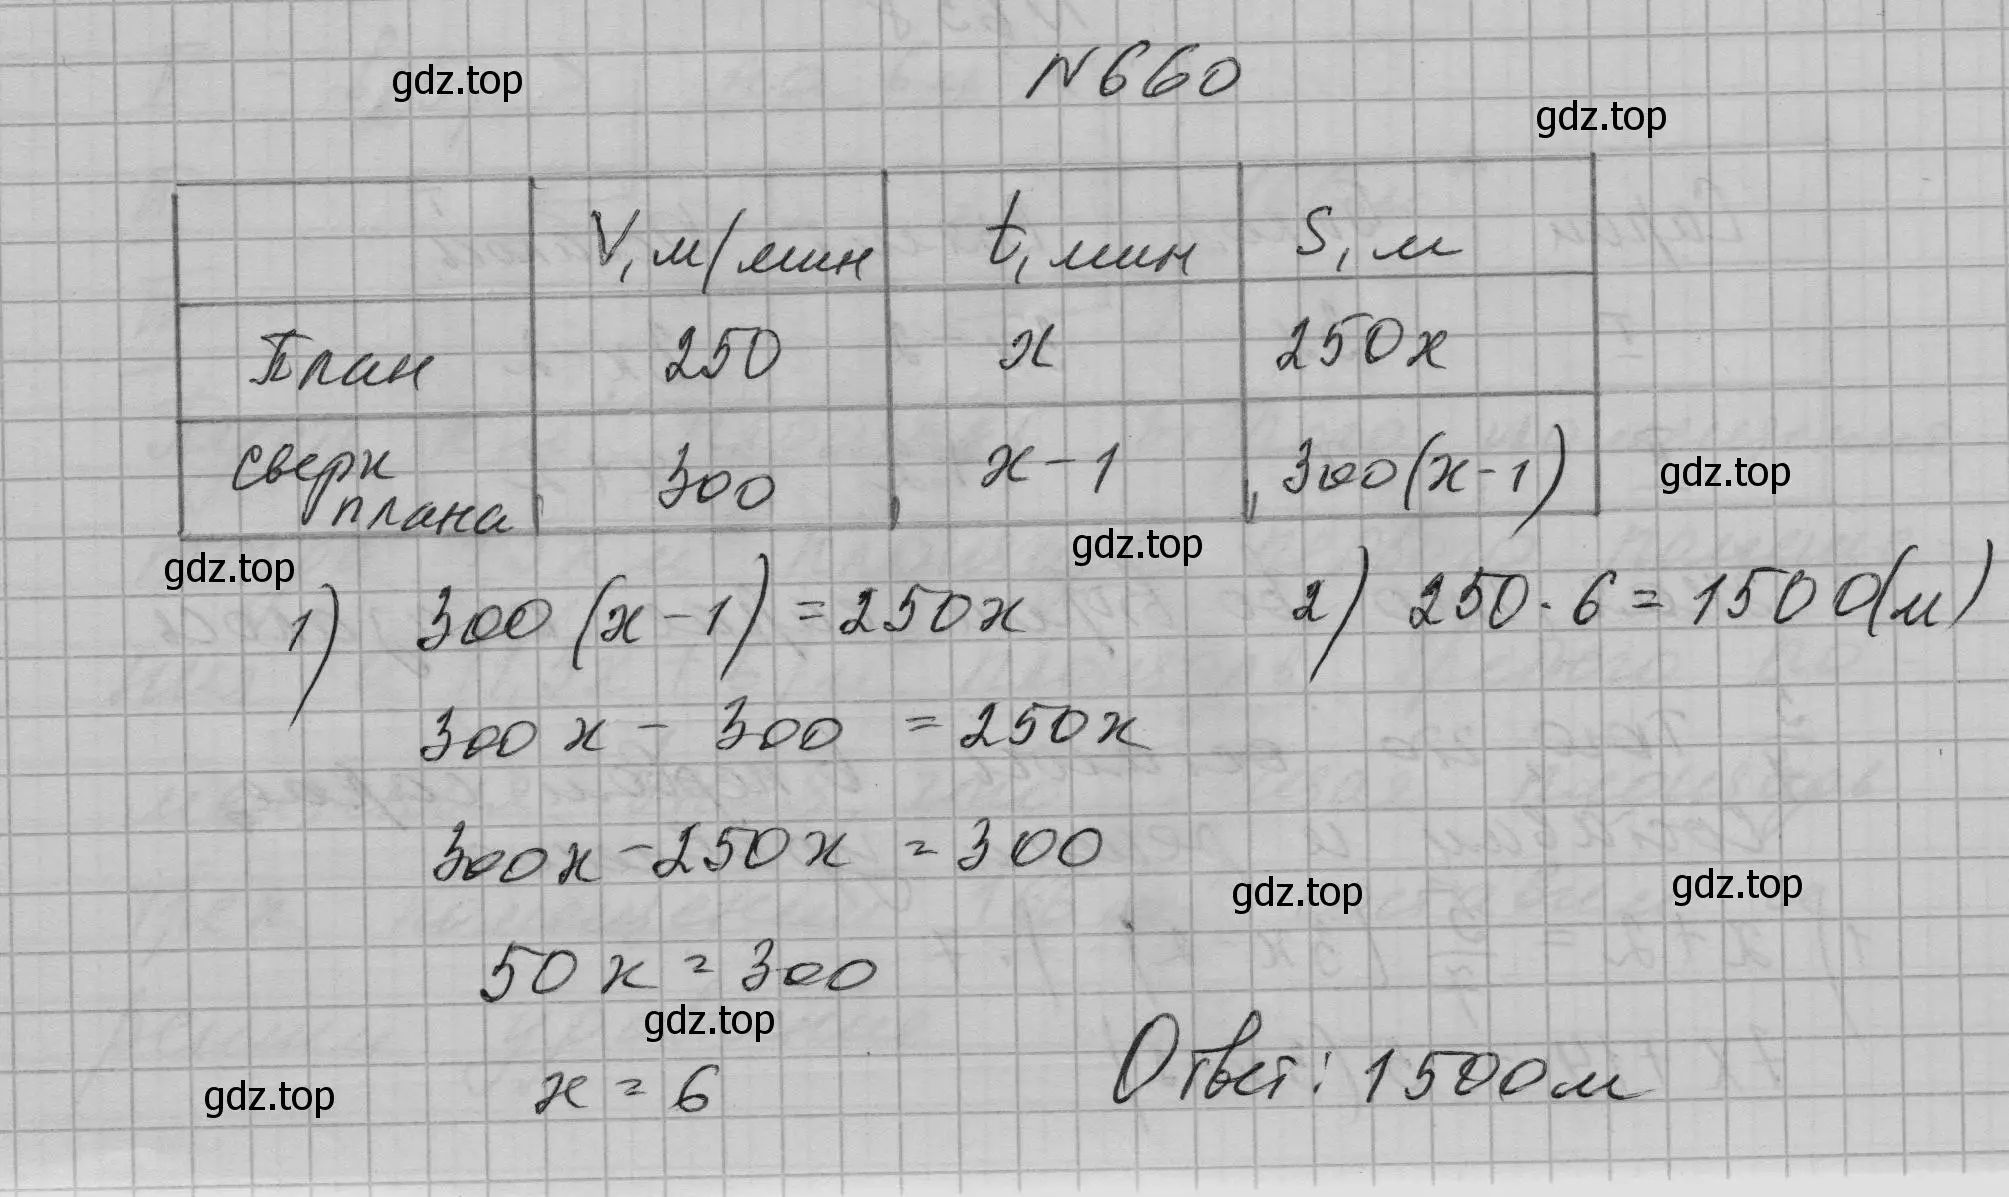 N660
gdz.top
gdz.top
V, м/мин t, мин S, м
План 250 x 250x
сверх плана 300 x-1 300(x-1)
gdz.top
gdz.top
gdz.top
1) 300(x-1)=250x
2) 250·6=1500(м)
300x-300=250x
300x-250x=300
gdz.top
gdz.top
50x=300
gdz.top
x=6
gdz.top
Ответ: 1500м